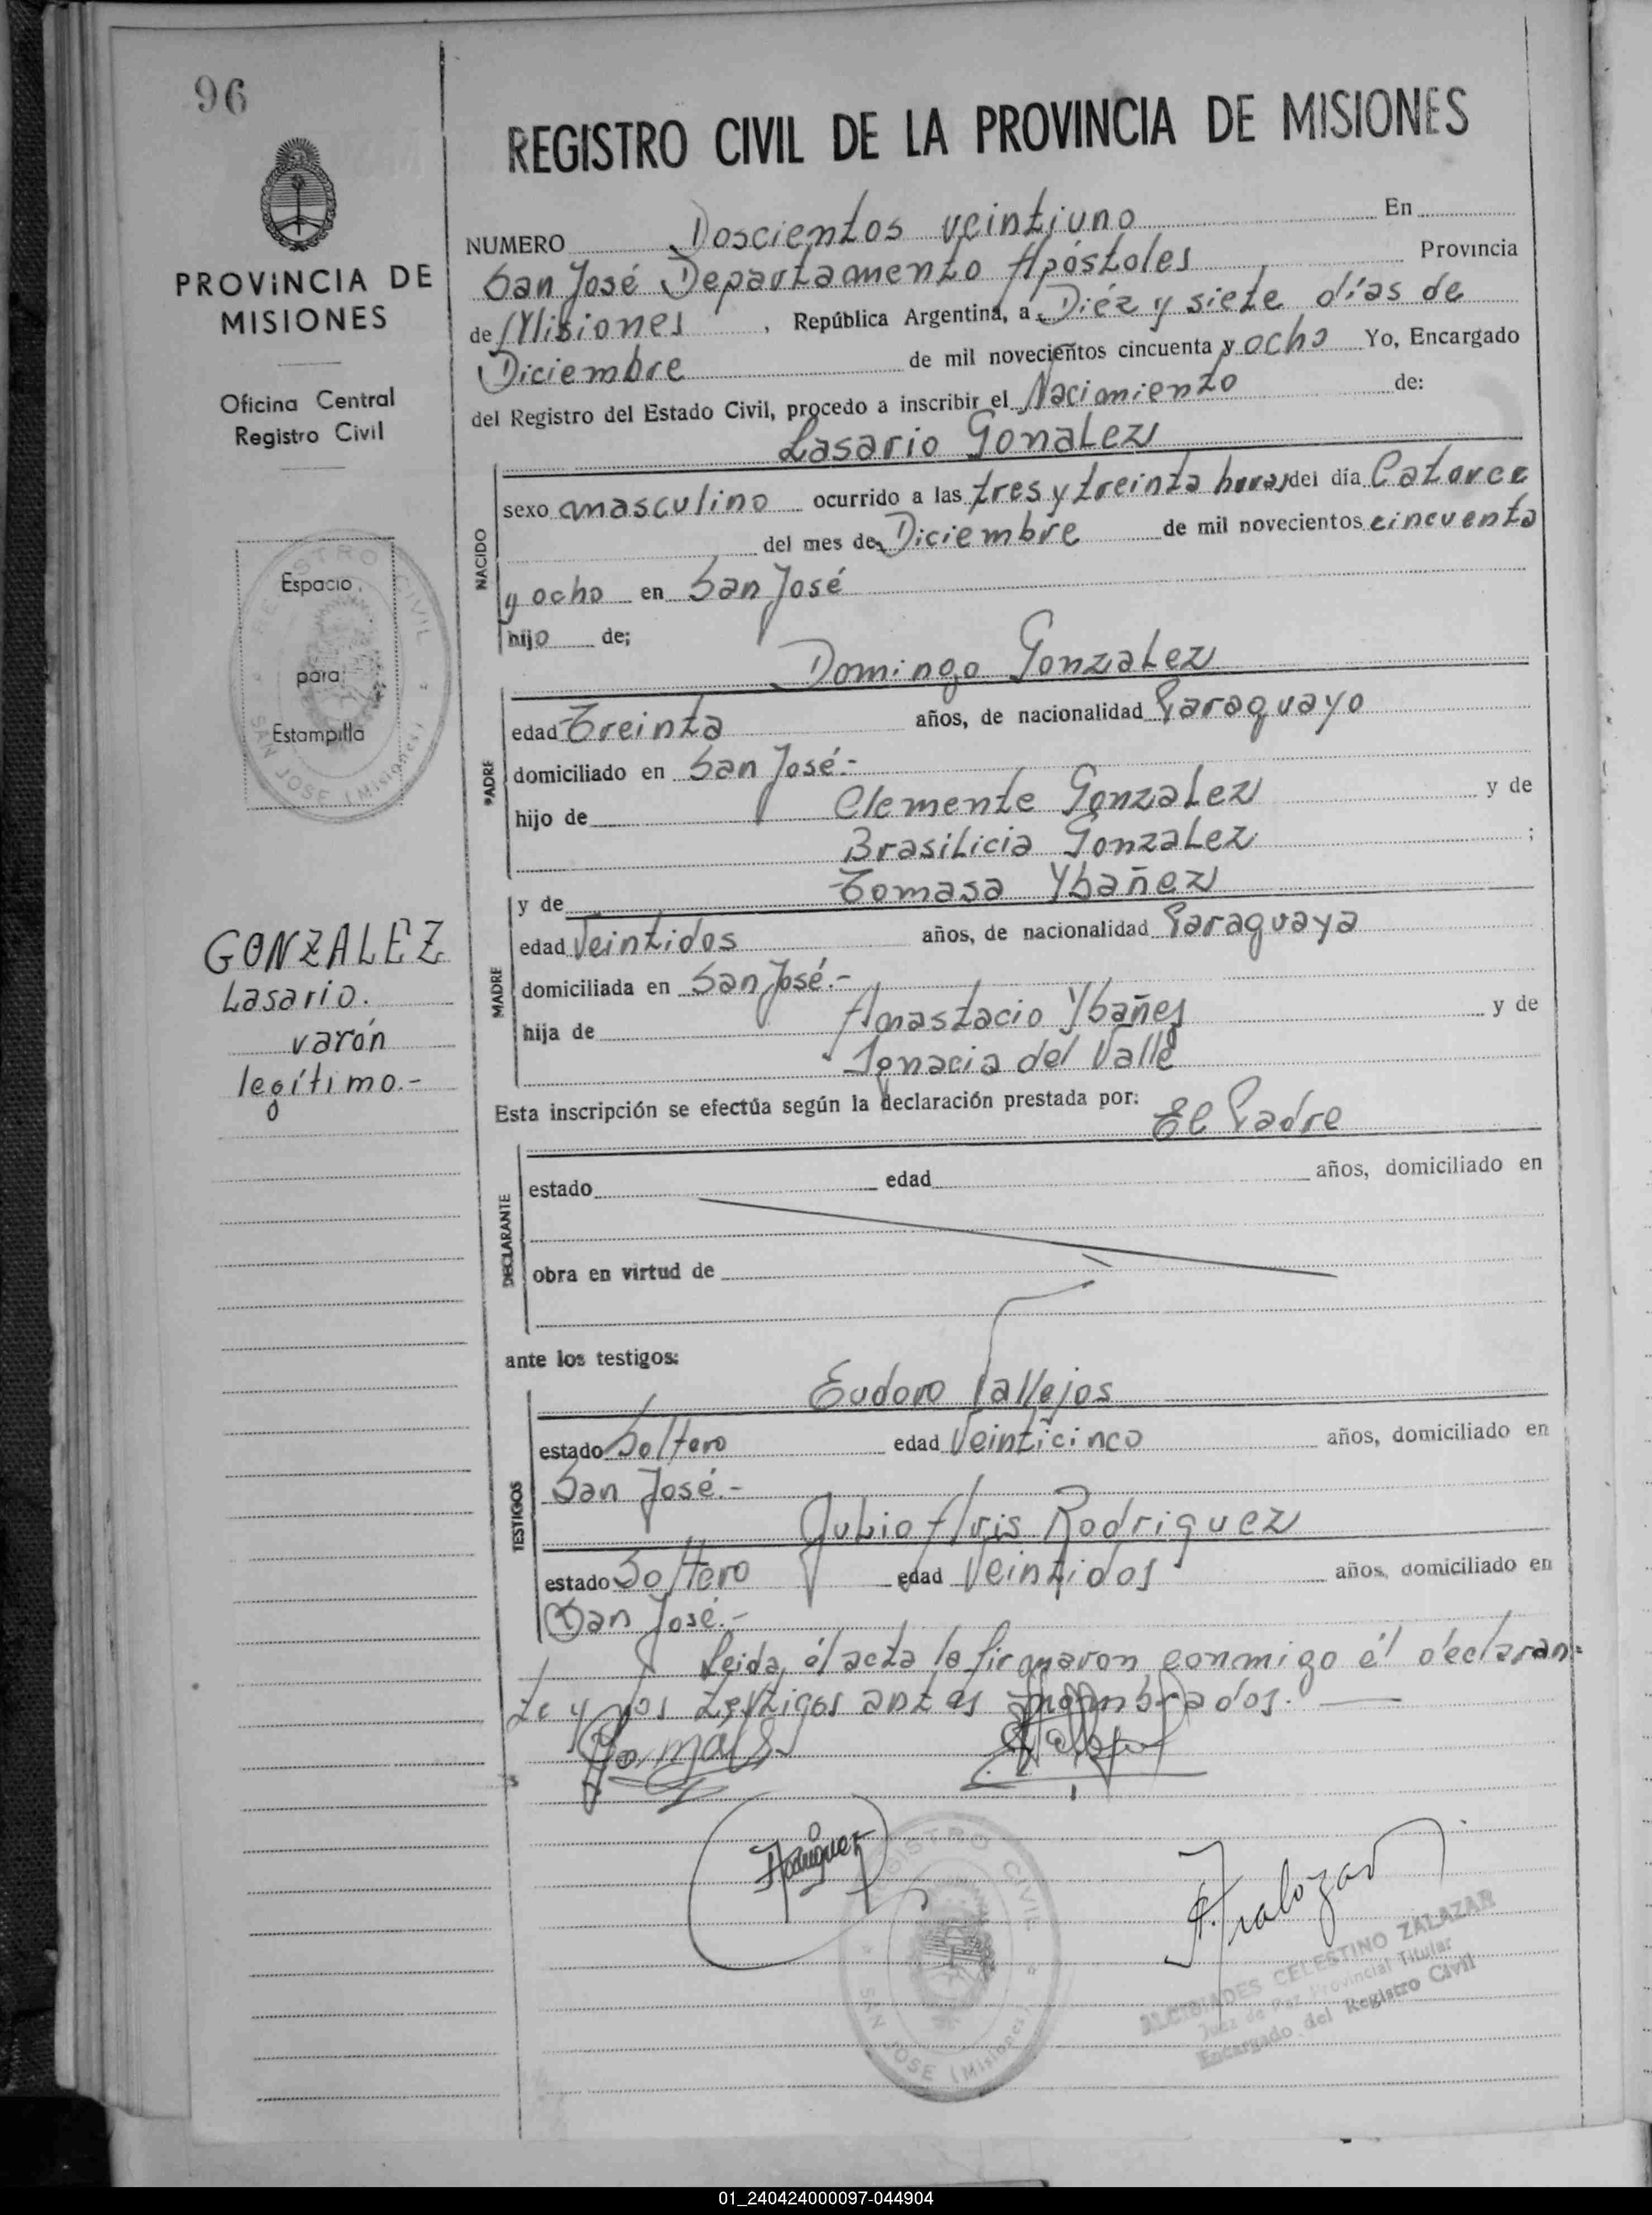 96
PROVINCIA DE
MISIONES
Oficina Central
Registro Civil
Espacio
para
Estampilla
REGISTRO CIVIL
SAN JOSE (Misiones)
GONZALEZ
Lasario.
varón
legítimo.-
REGISTRO CIVIL DE LA PROVINCIA DE MISIONES
NUMERO Doscientos veintiuno En
San José Departamento Apóstoles Provincia
de Misiones, República Argentina, a Diéz y siete días de
Diciembre de mil novecientos cincuenta y ocho Yo, Encargado
del Registro del Estado Civil, procedo a inscribir el Nacimiento de:
Lasario Gonalez
NACIDO
sexo masculino ocurrido a las tres y treinta horas del día Catorce
del mes de Diciembre de mil novecientos cincuenta
y ocho en San José
hijo de;
Domingo Gonzalez
PADRE
edad Treinta años, de nacionalidad Paraguayo
domiciliado en San José.-
hijo de Clemente Gonzalez y de
Brasilicia Gonzalez ;
y de Tomasa Ybañez
MADRE
edad Veintidos años, de nacionalidad Paraguaya
domiciliada en San José.-
hija de Anastacio Ybañes y de
Ignacia del Valle
Esta inscripción se efectúa según la declaración prestada por: El Padre
DECLARANTE
estado edad años, domiciliado en
obra en virtud de
ante los testigos:
Eudoro Vallejos
TESTIGOS
estado Soltero edad Veinticinco años, domiciliado en
San José.-
Rodriguez
estado Soltero edad Veintidos años, domiciliado en
San José.-
Leida él acta la firmaron conmigo él declaran=
te y los testigos antes nombrados.
REGISTRO CIVIL
SAN JOSE (Misiones)
ALCIBIADES CELESTINO ZALAZAR
Juez de Paz Provincial Titular
Encargado del Registro Civil
01_240424000097-044904